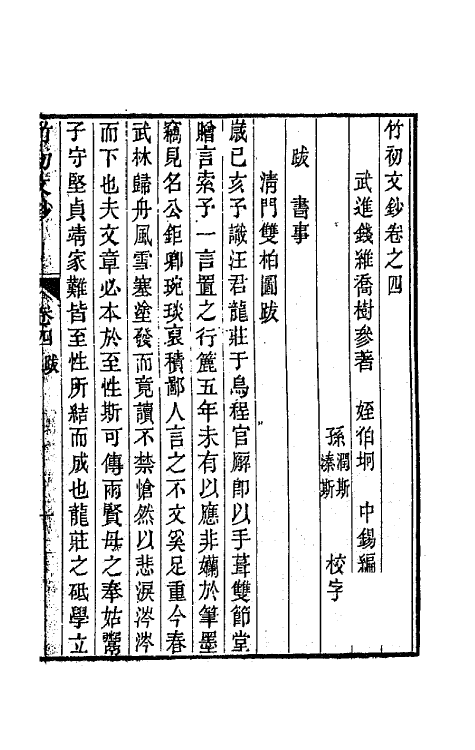 竹初文鈔卷之四
武進錢維喬樹參著 姪伯坰 中鍚編
孫潤斯 溱斯 校字
跋 書事
清門雙柏圖跋
嵗已亥予識汪君龍莊于烏程官廨卽以手葺雙節堂
贈言索予一言置之行簏五年未有以應非嬾於筆墨
竊見名公鉅卿琬琰裒積鄙人言之不文奚足重今春
武林歸舟風雪塞塗發而竟讀不禁愴然以悲淚涔涔
而下也夫文章必本於至性斯可傳兩賢母之奉姑鬻
子守堅貞靖家難皆至性所結而成也龍莊之砥學立
竹初文鈔 卷四 跋